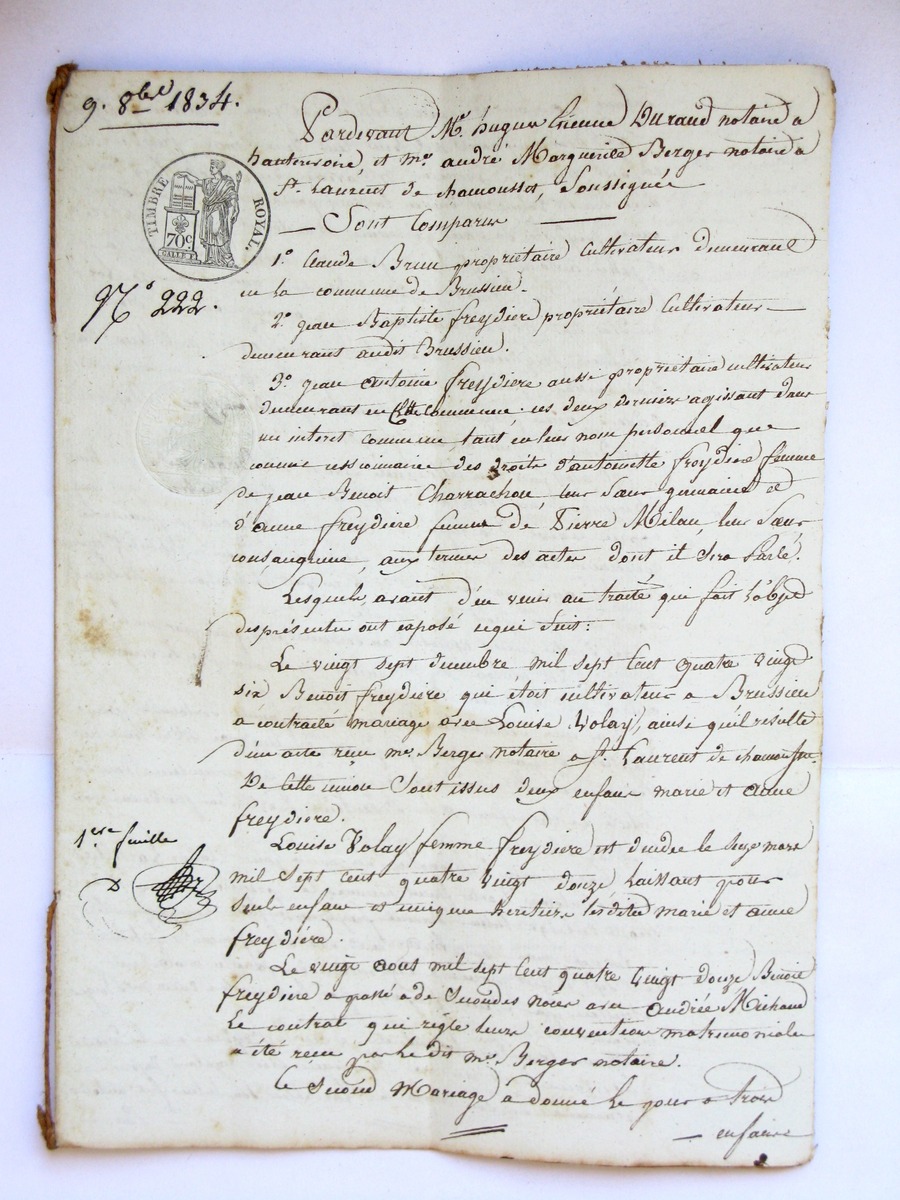 9. 8bre 1834.
Pardevant Me hugues Etienne Durand notaire a
hauterivoire, et me andré Marguerite Berger notaire a
St Laurent de chamousset, Soussignés
— Sont Comparus —
TIMBRE ROYAL
70c
1° Claude Brun propriétaire Cultivateur demeurant
en la commune de Brussieu.
N° 222.
2° jean Baptiste freydiere propriétaire Cultivateur
demeurant audit Brussieu.
3° jean antoine freydiere aussi propriétaire cultivateur
demeurant en Cette commune. ces deux derniers agissant dans
un interet commun tant en leur nom personnel que
comme cessionnaire des droits d'antoinette freydiere femme
de jean Benoit Charrachon leur Sœur germaine et
d'anne freydiere femme de Pierre Milan, leur Sœur
consanguine, aux termes des actes dont il Sera Parlé.
Lesquels avant d'en venir au traité qui fait l'objet
des présentes ont exposé ce qui Suit:
Le vingt sept decembre mil sept Cent quatre vingt
six Benoit freydiere qui était cultivateur a Brussieu
à contracté mariage avec Louise Volay, ainsi qu'il résulte
d'un acte reçu me Berger notaire a St Laurent de chamousset
De Cette union Sont issus deux enfans marie et anne
freydiere.
1ere feuille
Louise Volay femme freydiere est decedee le seize mars
mil sept cent quatre vingt douze laissant pour
Seuls enfans et unique heritiers lesdites marie et anne
freydiére.
Le vingt aout mil sept Cent quatre vingt douze Benoit
freydiere a passé a de Secondes noces avec andrée Michaud
Le contrat qui règle leurs conventions matrimoniales
a été reçu par le dit me Berger notaire.
Ce Second Mariage a donné le jour a trois
— enfans